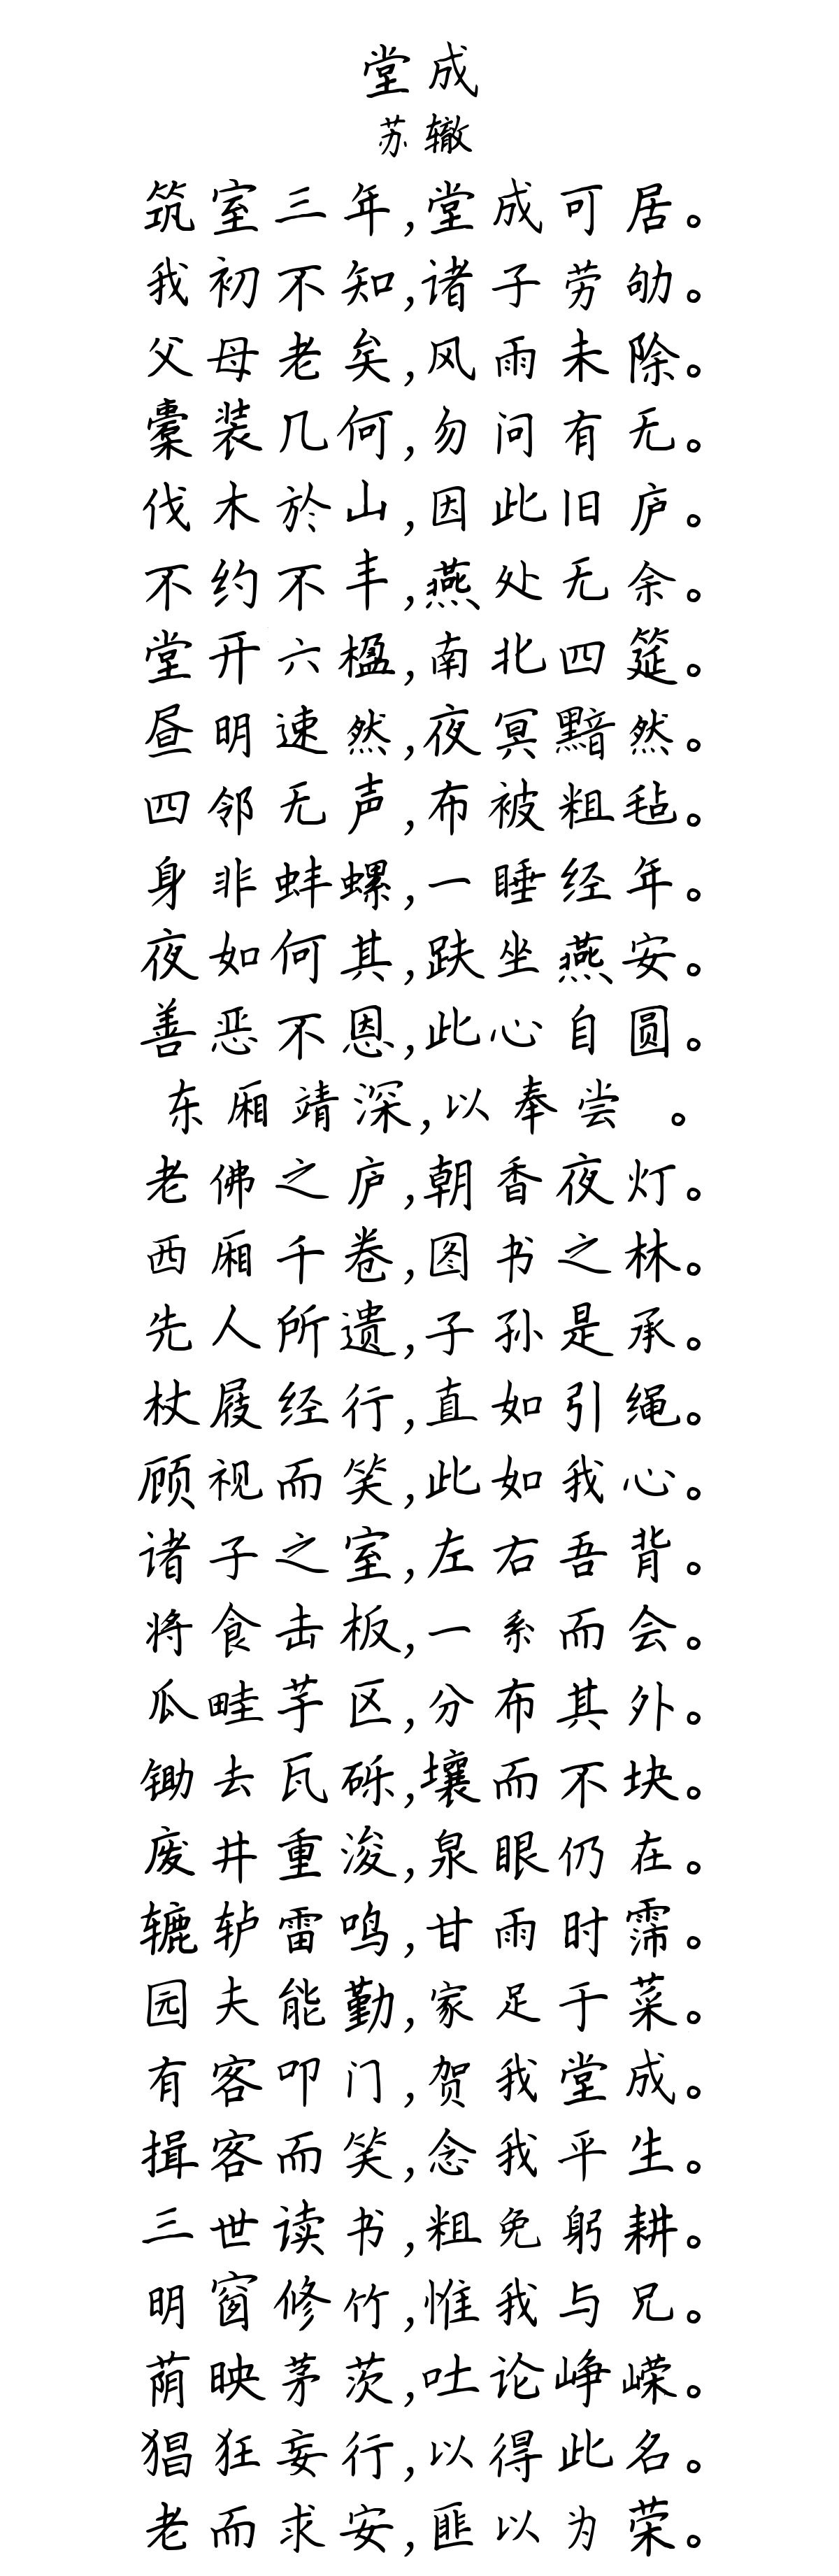 堂成
苏辙
筑室三年,堂成可居。
我初不知,诸子劳劬。
父母老矣,风雨未除。
橐装几何,勿问有无。
伐木於山,因此旧庐。
不约不丰,燕处无余。
堂开六楹,南北四筵。
昼明速然,夜冥黯然。
四邻无声,布被粗毡。
身非蚌螺,一睡经年。
夜如何其,趺坐燕安。
善恶不恩,此心自圆。
东厢靖深,以奉尝 。
老佛之庐,朝香夜灯。
西厢千卷,图书之林。
先人所遗,子孙是承。
杖屐经行,直如引绳。
顾视而笑,此如我心。
诸子之室,左右吾背。
将食击板,一系而会。
瓜畦芋区,分布其外。
锄去瓦砾,壤而不块。
废井重浚,泉眼仍在。
辘轳雷鸣,甘雨时霈。
园夫能勤,家足于菜。
有客叩门,贺我堂成。
揖客而笑,念我平生。
三世读书,粗免躬耕。
明窗修竹,惟我与兄。
荫映茅茨,吐论峥嵘。
猖狂妄行,以得此名。
老而求安,匪以为荣。